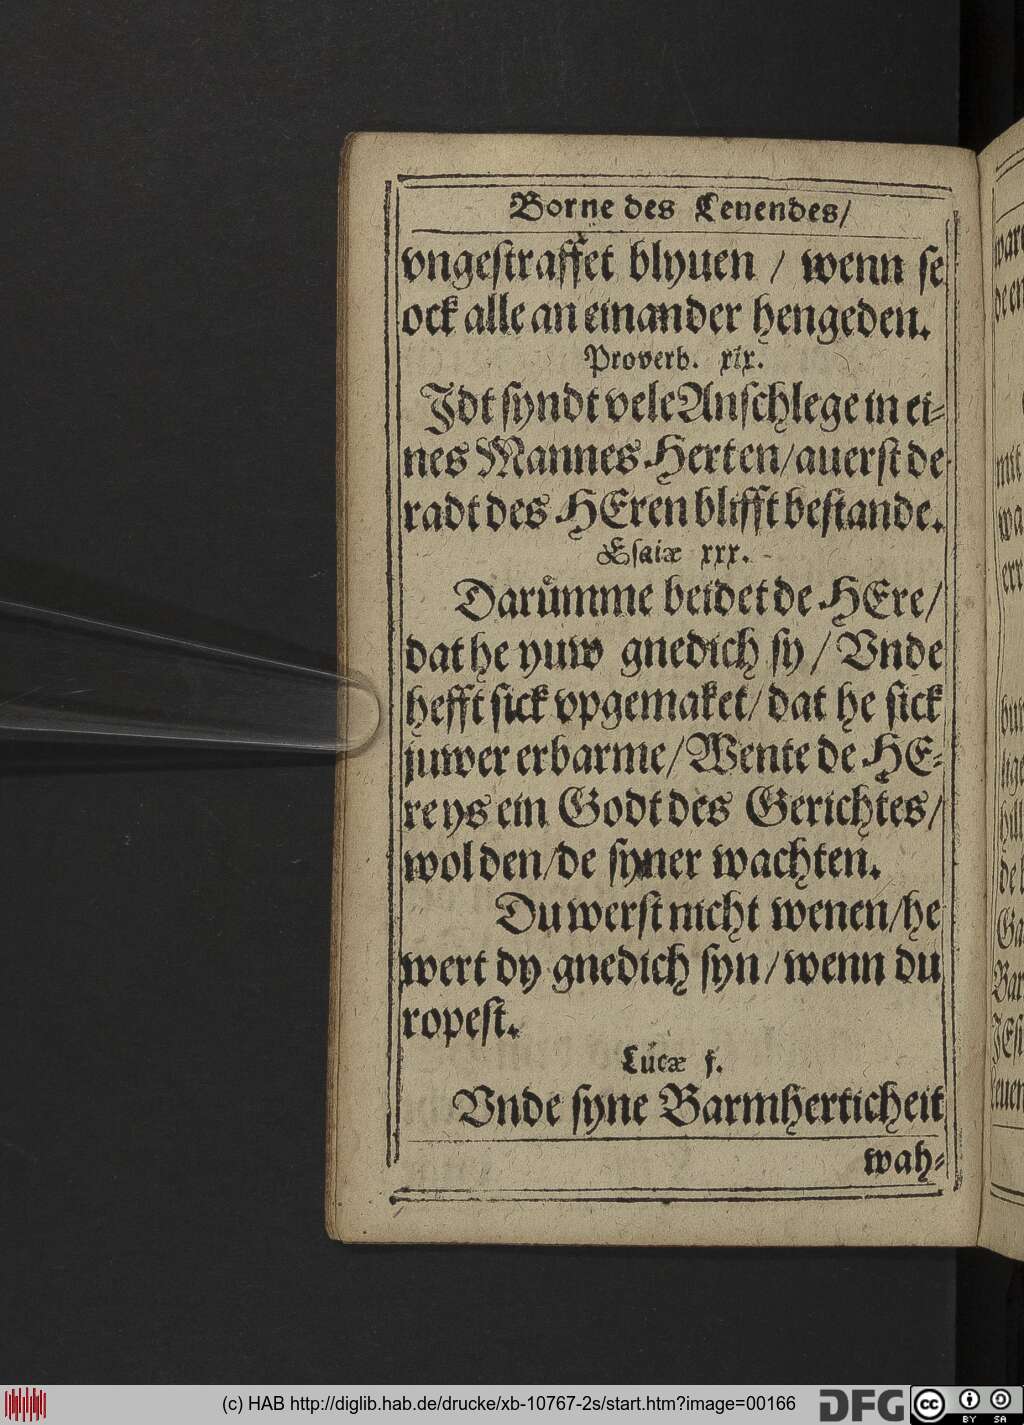 Borne des Leuendes/
vngestraffet blyuen / wenn se
ock alle an einander hengeden.
Proverb. xix.
Jdt syndt vele Anschlege in ei-
nes Mannes Herten/auerst de
radt des HEren blifft bestande.
Esaiæ xxx.
Darümme beidet de HEre/
dat he yuw gnedich sy / Vnde
hefft sick vpgemaket/ dat he sick
juwer erbarme/Wente de HE-
re ys ein Godt des Gerichtes/
wol den/de syner wachten.
Du werst nicht wenen/he
wert dy gnedich syn/wenn du
ropest.
Lucæ j.
Vnde syne Barmherticheit
wah-
ware
de en
mit
wa
err
Bar
JEsu
leuen
(c) HAB http://diglib.hab.de/drucke/xb-10767-2s/start.htm?image=00166
DFG
cc
BY SA